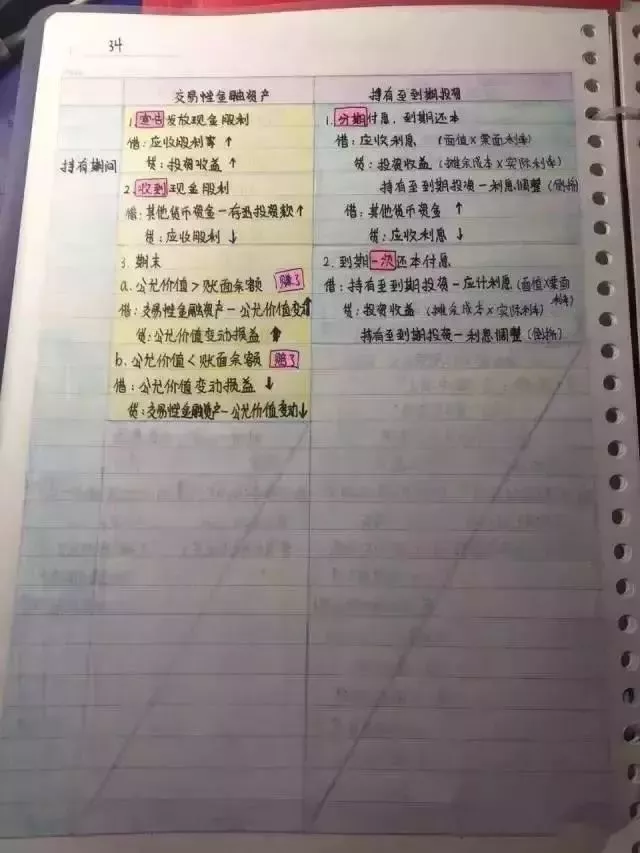 34
交易性金融资产
持有至到期投资
持有期间
1. 宣告发放现金股利
借：应收股利 ↑
贷：投资收益 ↑
2. 收到现金股利
借：其他货币资金－存出投资款 ↑
贷：应收股利 ↓
3. 期末
a. 公允价值 > 账面余额 赚了
借：交易性金融资产－公允价值变动 ↑
贷：公允价值变动损益 ↑
b. 公允价值 < 账面余额 赔了
借：公允价值变动损益 ↓
贷：交易性金融资产－公允价值变动 ↓
1. 分期付息，到期还本
借：应收利息 （面值×票面利率）
贷：投资收益 （摊余成本×实际利率）
持有至到期投资－利息调整（倒挤）
借：其他货币资金 ↑
贷：应收利息 ↓
2. 到期一次还本付息
借：持有至到期投资－应计利息（面值×票面利率）
贷：投资收益 （摊余成本×实际利率）
持有至到期投资－利息调整（倒挤）